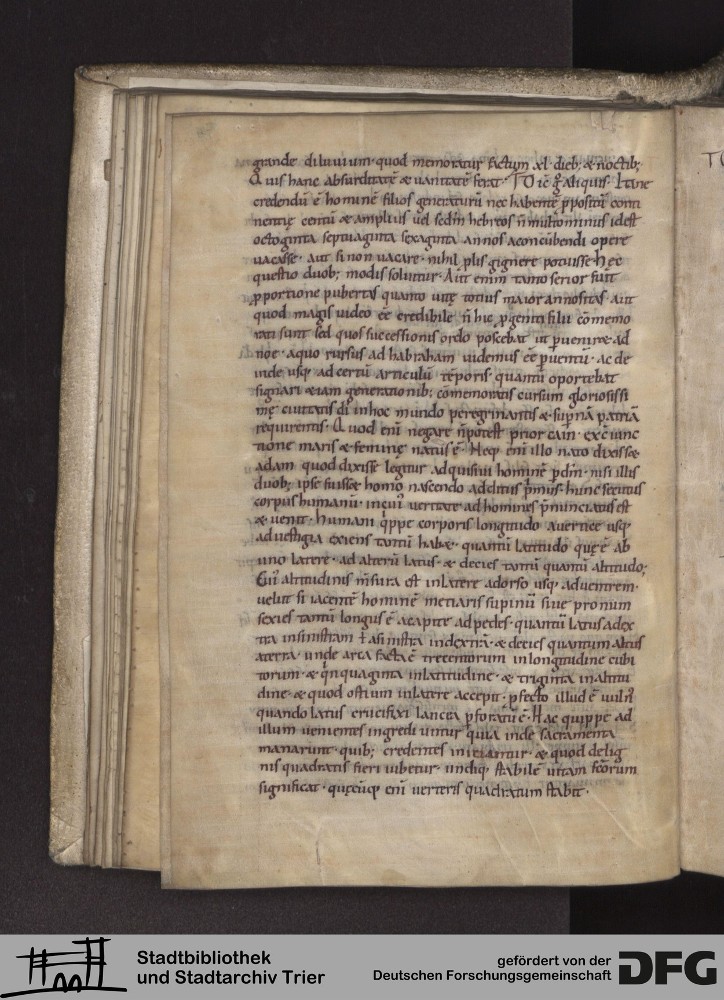 grande diluuium· quod memoratur factum xl dieb; & noctib;
Quis hanc absurditatē & uanitatē ferat·
credendū ē hominē filios generaturū nec habentē p̄positū conti
nentię centū & amplius uel sedm̄ hebreos n̄ multominus idest
octoginta septuaginta sexaginta annos aconcūbendi opere
uacasse· aut si non uacare· nihil plis gignere potuisse· Hęc
questio duob; modis soluitur· Aut enim tanto serior fuit
ꝓportione pubertas quanto uitę totius maior annositas· aut
quod magis uideo eē credibile n̄ hic ꝓgeniti filii cōmemo
rati sunt sed quos successionis ordo poscebat ut p̄uenire& ad
noe· aquo rursus ad habraham uidemus eē p̄uentū· ac de
inde usq; ad certū articulū tēporis· quantū oportebat
signari &iam generationib; cōmemoratis cursum gloriosissi
mę ciuitatis dī inhoc mundo peregrinantis & supnā patriā
requirentis· Quod enī negare n̄ potest prior cain· ex cūinc
tione maris & feminę natus ē· Neq; enī illo nato dixiss&
adam quod dixisse legitur adquisiui hominē p̄ dm̄· nisi illis
duob; ipse fuiss& homo nascendo additus p̄mus· hunc secutus
corpus humanū· incui᷒ ueritate ad homines p̄nunciatus est
& uenit· Humani q̀ppe corporis longitudo auertice usq;
aduestigia exiens tantū hab&· quantū latitudo quę ē ab
uno latere· ad alterū latus· & decies tantū quantū altitudo;
Cui᷒ altitudinis m̄sura est inlatere adorso usq; aduentrem·
uelut si iacentē hominē metiaris supinū siue pronum
sexies tantū longus ē acapite ad pedes· quantū latus adex
tra insinistram ł asinistra indextrā· & decies quantum altus
aterra· unde arca facta ē trecentorum inlongitudine cubi
torum· & q̀nquaginta inlatitudine· & triginta inaltitu
dine· & quod ostium inlatere accepit· ꝓfecto illud ē uuln᷒
quando latus crucifixi lancea p̄foratū ē· Hac quippe ad
illum uenientes ingrediuntur quia inde sacramenta
manarunt· quib; credentes initiantur· & quod delig
nis quadratis fieri iubetur· undiq; stabilē uitam scōrum
significat· quęcūq; enī uerteris quadratum stabit·
Stadtbibliothek
und Stadtarchiv Trier
gefördert von der
Deutschen Forschungsgemeinschaft
DFG